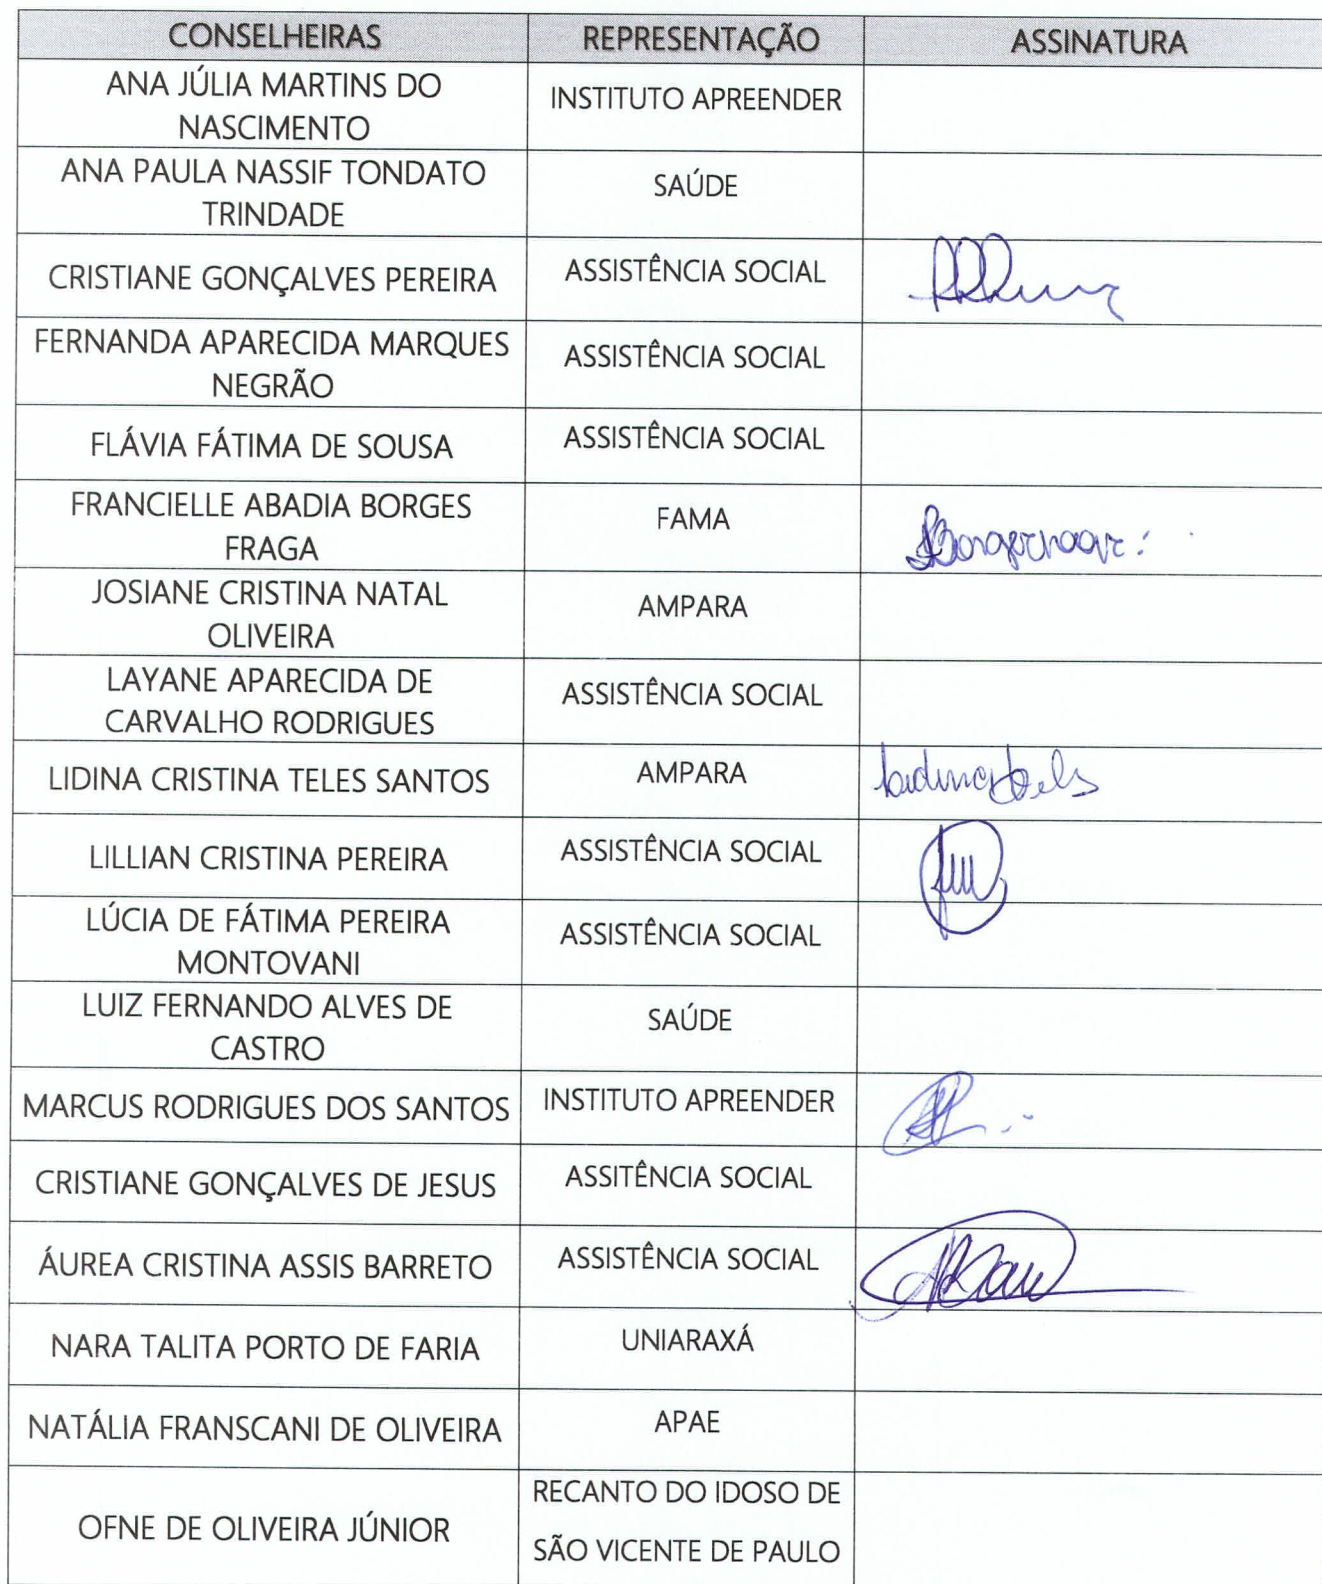 CONSELHEIRAS REPRESENTAÇÃO ASSINATURA
ANA JÚLIA MARTINS DO
NASCIMENTO
INSTITUTO APREENDER
ANA PAULA NASSIF TONDATO
TRINDADE
SAÚDE
CRISTIANE GONÇALVES PEREIRA ASSISTÊNCIA SOCIAL
FERNANDA APARECIDA MARQUES
NEGRÃO
ASSISTÊNCIA SOCIAL
FLÁVIA FÁTIMA DE SOUSA ASSISTÊNCIA SOCIAL
FRANCIELLE ABADIA BORGES
FRAGA
FAMA
JOSIANE CRISTINA NATAL
OLIVEIRA
AMPARA
LAYANE APARECIDA DE
CARVALHO RODRIGUES
ASSISTÊNCIA SOCIAL
LIDINA CRISTINA TELES SANTOS AMPARA
LILLIAN CRISTINA PEREIRA ASSISTÊNCIA SOCIAL
LÚCIA DE FÁTIMA PEREIRA
MONTOVANI
ASSISTÊNCIA SOCIAL
LUIZ FERNANDO ALVES DE
CASTRO
SAÚDE
MARCUS RODRIGUES DOS SANTOS INSTITUTO APREENDER
CRISTIANE GONÇALVES DE JESUS ASSITÊNCIA SOCIAL
ÁUREA CRISTINA ASSIS BARRETO ASSISTÊNCIA SOCIAL
NARA TALITA PORTO DE FARIA UNIARAXÁ
NATÁLIA FRANSCANI DE OLIVEIRA APAE
OFNE DE OLIVEIRA JÚNIOR
RECANTO DO IDOSO DE
SÃO VICENTE DE PAULO